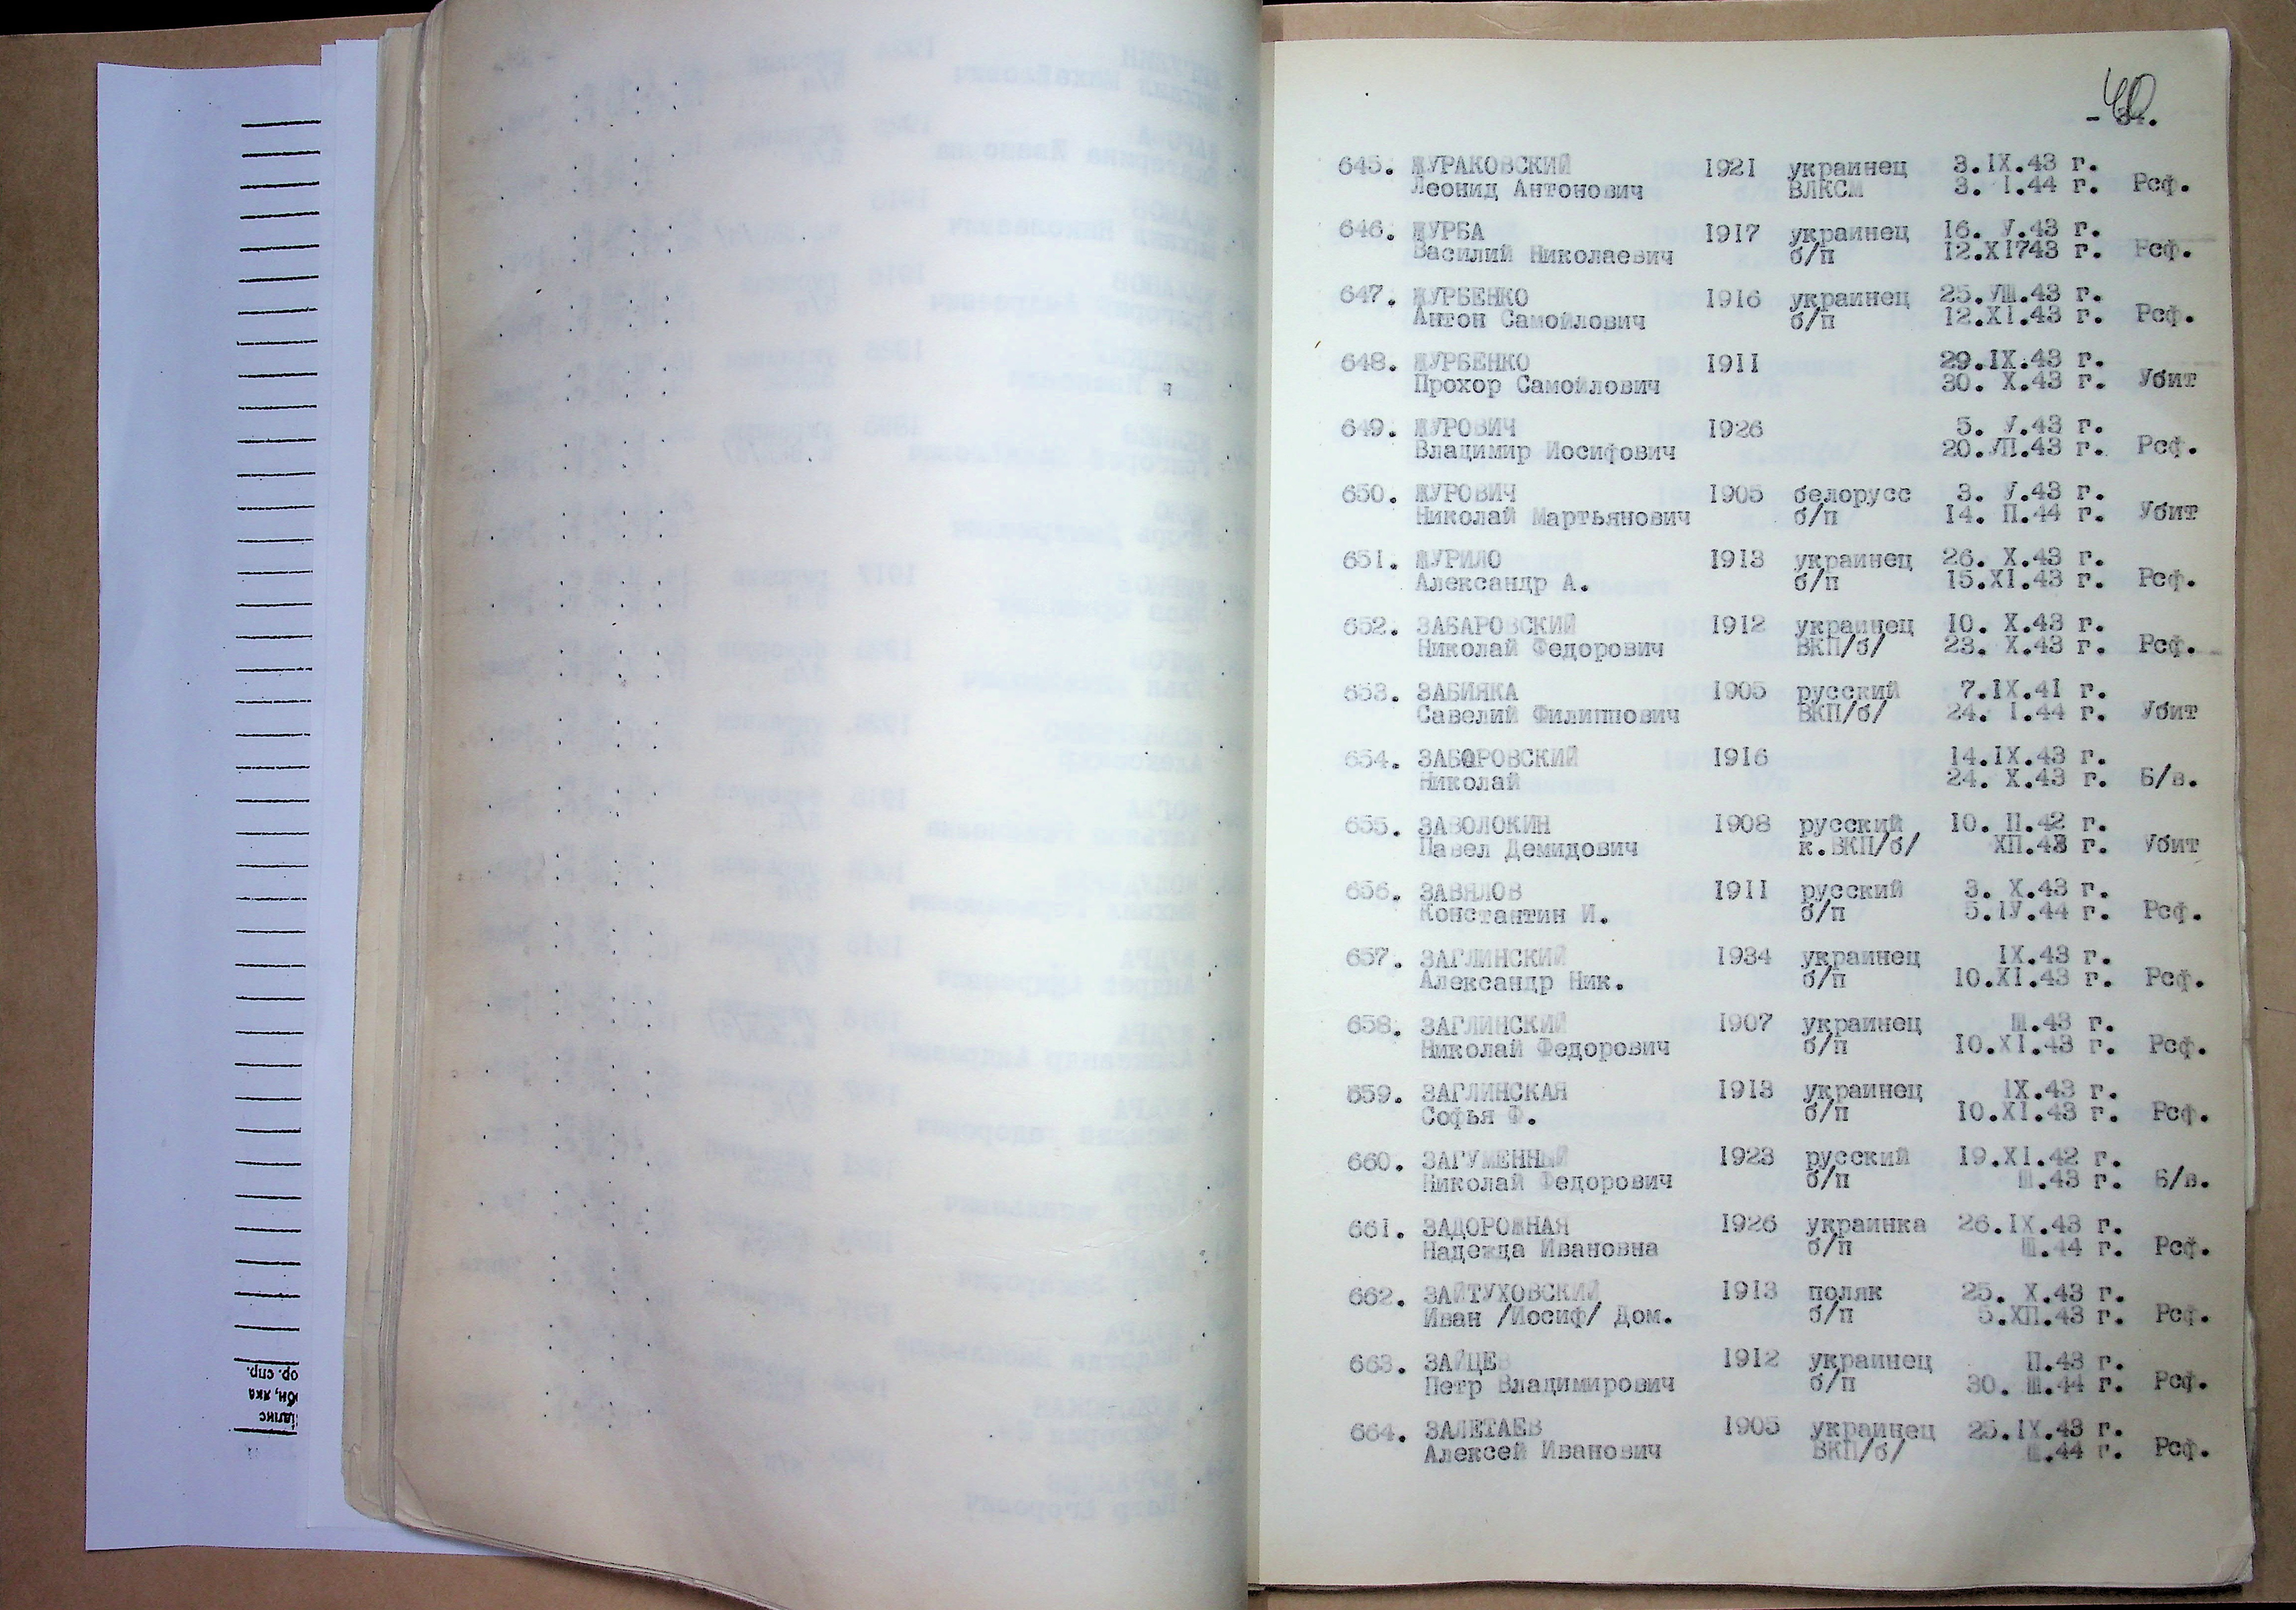 40
645. ЖУРАКОВСКИЙ 1921 украинец 3.IX.43 г.
Леонид Антонович ВЛКСМ 3. I.44 г. Рсф.
646. ЖУРБА 1917 украинец 16. У.43 г.
Василий Николаевич б/п 12.XI743 г. Рсф.
647. ЖУРБЕНКО 1916 украинец 25.УШ.43 г.
Антон Самойлович б/п 12.XI.43 г. Рсф.
648. ЖУРБЕНКО 1911 29.IX.43 г.
Прохор Самойлович 30. X.43 г. Убит
649. ЖУРОВИЧ 1926 5. У.43 г.
Владимир Иосифович 20.УП.43 г. Рсф.
650. ЖУРОВИЧ 1905 белорусс 3. У.43 г.
Николай Мартьянович б/п 14. П.44 г. Убит
651. ЖУРИЛО 1913 украинец 26. X.43 г.
Александр А. б/п 15.XI.43 г. Рсф.
652. ЗАБАРОВСКИЙ 1912 украинец 10. X.43 г.
Николай Федорович ВКП/б/ 23. X.43 г. Рсф.
653. ЗАБИЯКА 1905 русский 7.IX.41 г.
Савелий Филиппович ВКП/б/ 24. I.44 г. Убит
654. ЗАБОРОВСКИЙ 1916 14.IX.43 г.
Николай 24. X.43 г. Б/в.
655. ЗАВОЛОКИН 1908 русский 10. П.42 г.
Павел Демидович к.ВКП/б/ ХП.43 г. Убит
656. ЗАВЯЛОВ 1911 русский 3. X.43 г.
Константин И. б/п 5.IУ.44 г. Рсф.
657. ЗАГЛИНСКИЙ 1934 украинец IX.43 г.
Александр Ник. б/п 10.XI.43 г. Рсф.
658. ЗАГЛИНСКИЙ 1907 украинец Ш.43 г.
Николай Федорович б/п 10.XI.43 г. Рсф.
659. ЗАГЛИНСКАЯ 1913 украинец IX.43 г.
Софья Ф. б/п 10.XI.43 г. Рсф.
660. ЗАГУМЕННЫЙ 1923 русский 19.XI.42 г.
Николай Федорович б/п Ш.43 г. Б/в.
661. ЗАДОРОЖНАЯ 1926 украинка 26.IX.43 г.
Надежда Ивановна б/п Ш.44 г. Рсф.
662. ЗАЙТУХОВСКИЙ 1913 поляк 25. X.43 г.
Иван /Иосиф/ Дом. б/п 5.ХП.43 г. Рсф.
663. ЗАЙЦЕВ 1912 украинец П.43 г.
Петр Владимирович б/п 30. Ш.44 г. Рсф.
664. ЗАЛЕТАЕВ 1905 украинец 25.IX.43 г.
Алексей Иванович ВКП/б/ Ш.44 г. Рсф.